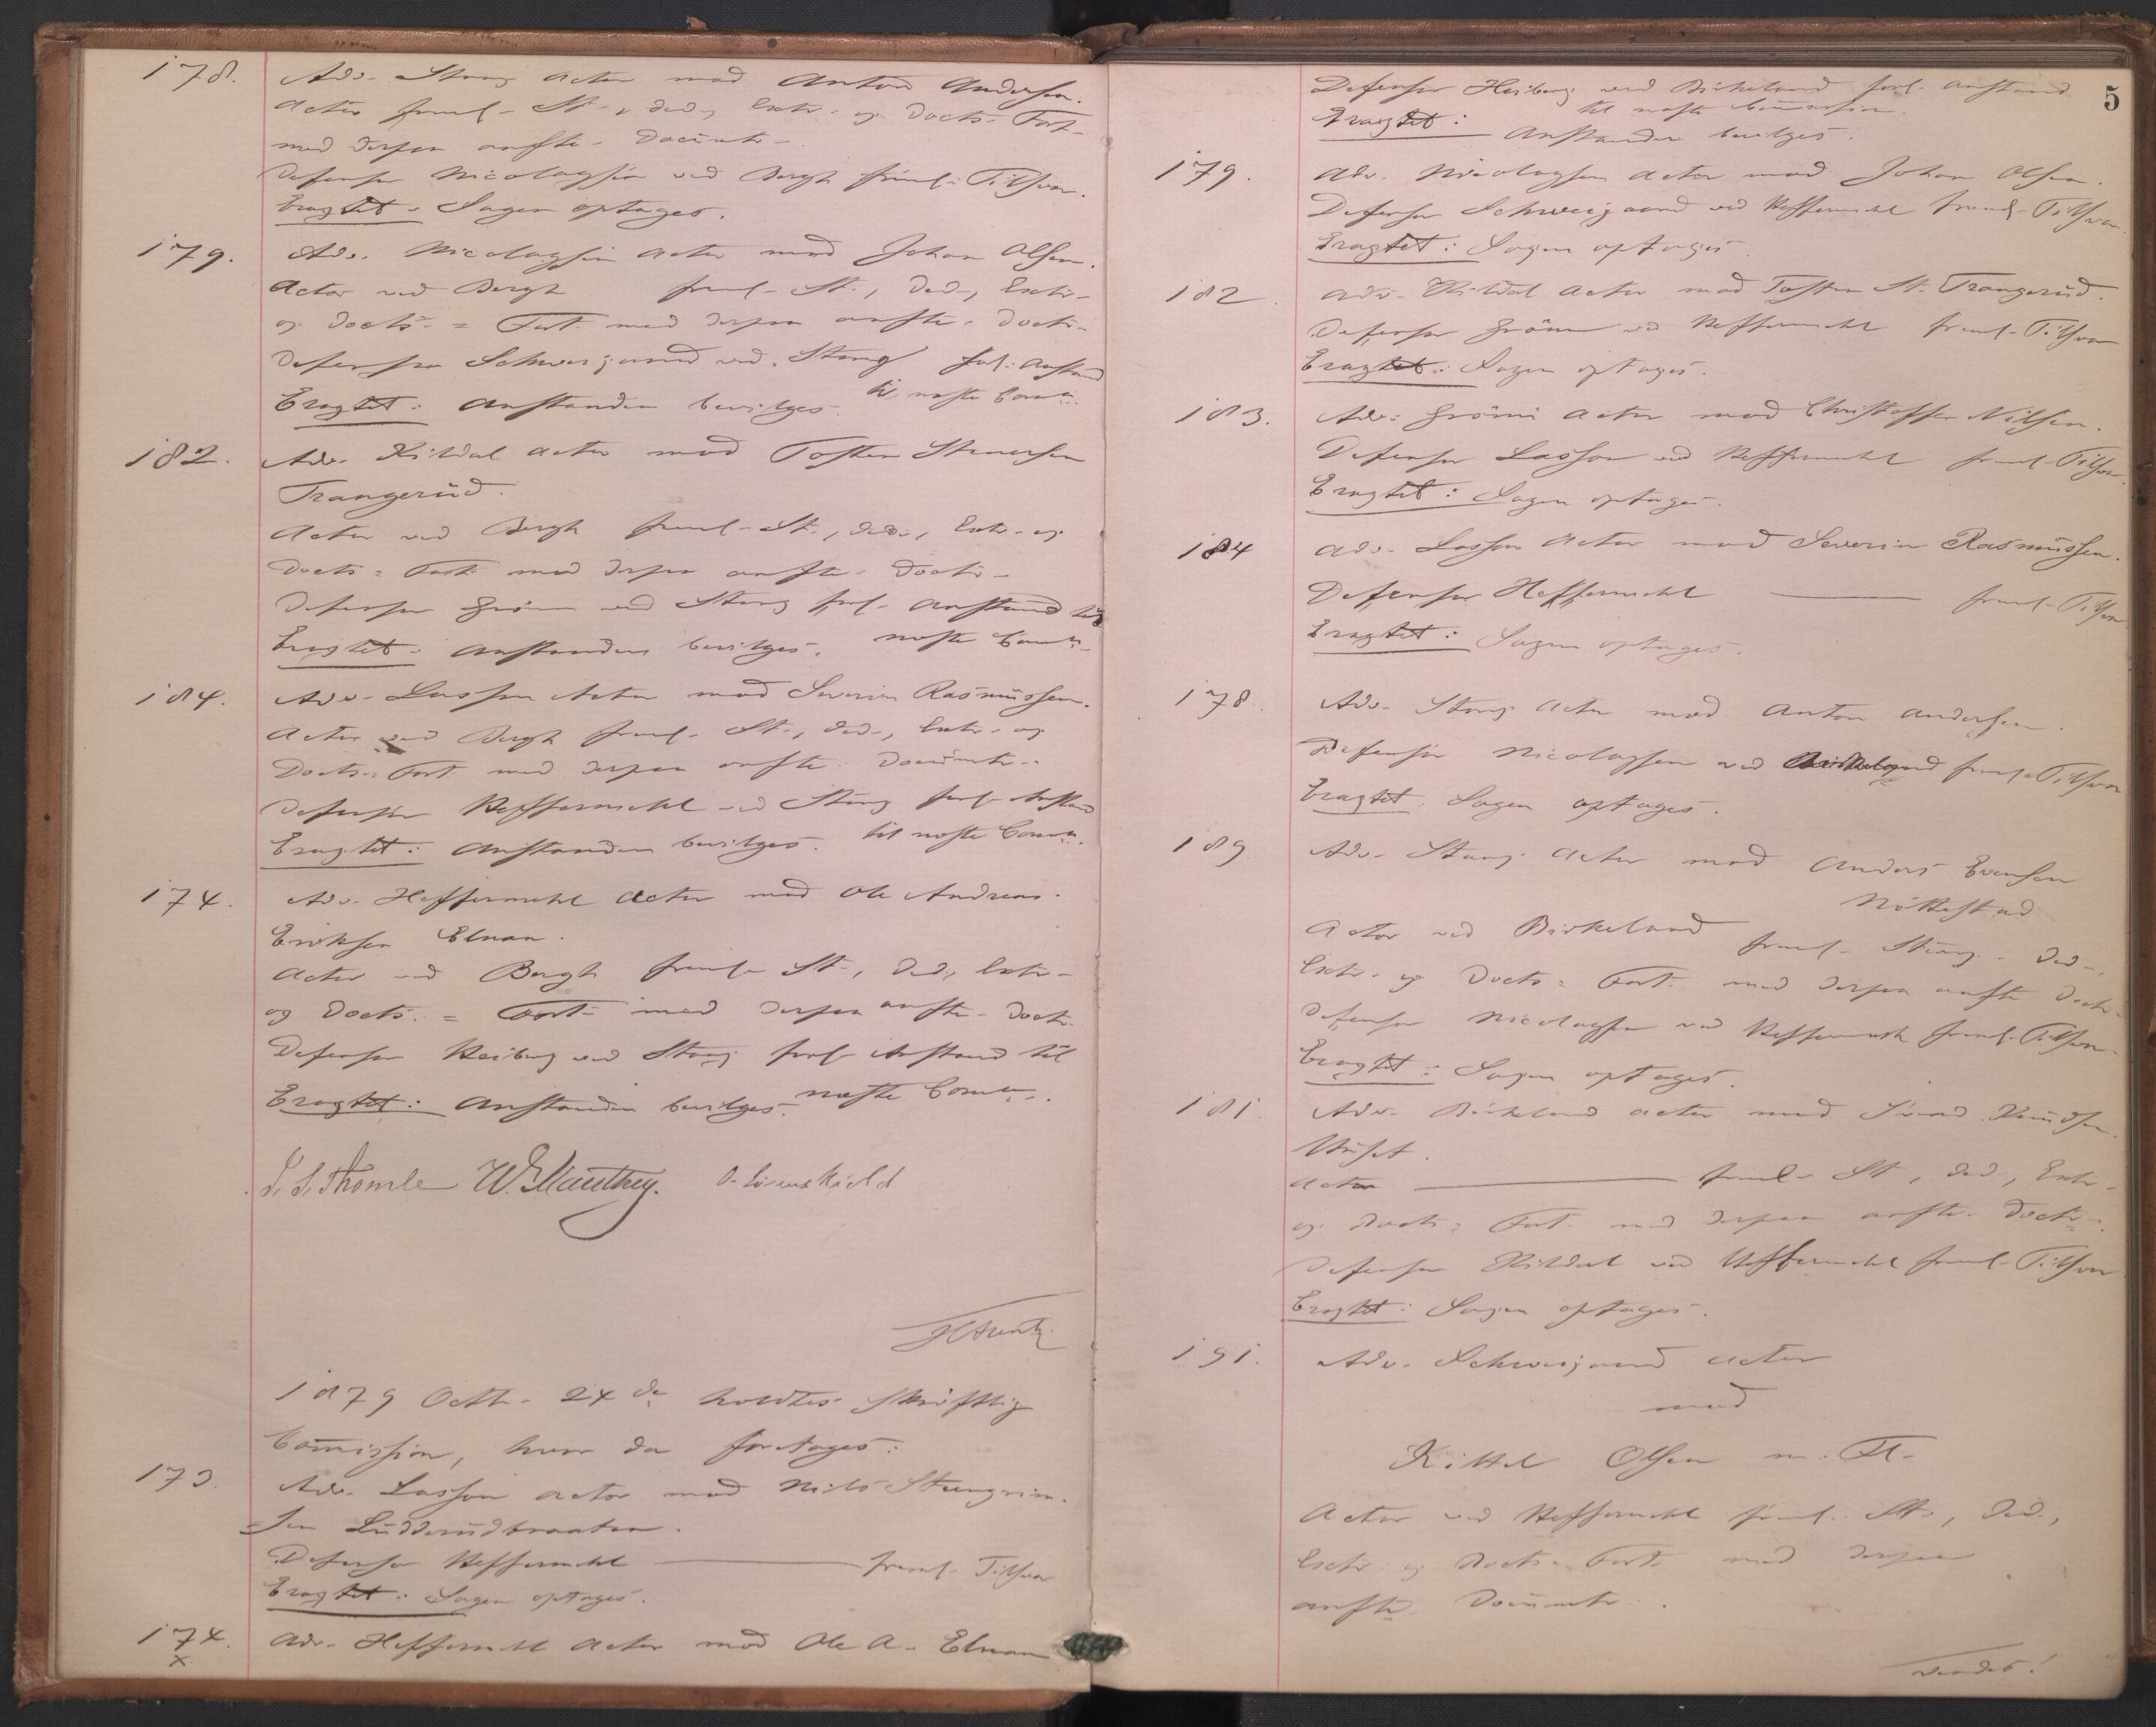 178. Adv. Stang Actor mod Anton Andersen.
Actor freml. St., Ded., Extr. og Docts. Fort.
med derpaa anfte. Documtr.
Defensor Nicolaysen ved Bergh freml. Tilsvar.
Eragtet: Sagen optages.
179. Adv. Nicolaysen Actor mod Johan Olsen.
Actor ved Bergh freml. St., Ded., Extr.
og Docts. = Fort. med derpaa anfte. Doctr.
Defensor Schweigaard ved Stang forl. Anstand
til næste Comm.
Eragtet: Anstanden bevilges.
182. Adv. Kildal Actor mod Tosten Stenersen
Trangerüd.
Actor ved Bergh freml. St., Ded., Extr. og
Docts. = Fort. med derpaa anfte. Doctr.
Defensor Grönn ved Stang forl. Anstand til
næste Comm.
Eragtet: Anstanden bevilges.
184. Adv. Lasson Actor mod Severin Rasmüssen.
Actor ved Bergh freml. St., Ded., Extr. og
Docts. = Fort. med derpaa anfte. Documtr.
Defensor Heffermehl ved Stang forl. Anstand
til næste Comm.
Eragtet: Anstanden bevilges.
174. Adv. Heffermehl Actor mod Ole Andreas
Eriksen Elnan.
Actor ved Bergh freml. St., Ded., Extr.
og Docts. = Fort. med derpaa anfte. Doctr.
Defensor Heiberg ved Stang forl. Anstand til
næste Comm.
Eragtet: Anstanden bevilges.
J. S. Thomle W. Manthey. O. Lövenskiold
1879 Octbr. 24de holdtes skriftlig
Com̄ission, hvor da foretages:
173. Adv. Lasson Actor mod Nils Steingrim-
sen Lüdderüdbraaten.
Defensor Heffermehl ——— freml. Tilsvar
Eragtet: Sagen optages.
174. Adv. Heffermehl Actor mod Ole A. Elnan
x
5
Defensor Heiberg ved Birkeland forl. Anstand
til næste Com̄ission.
Eragtet: Anstanden bevilges.
179. Adv. Nicolaysen Actor mod Johan Olsen.
Defensor Schweigaard ved Heffermehl freml. Tilsvar
Eragtet: Sagen optages.
182. Adv. Kildal Actor mod Tosten St. Trangerüd.
Defensor Grönn ved Heffermehl freml. Tilsvar
Eragtet: Sagen optages.
183. Adv. Grönn Actor mod Christoffer Nilsen.
Defensor Lasson ved Heffermehl freml. Tilsvar.
Eragtet: Sagen optages.
184 Adv. Lasson Actor mod Severin Rasmüssen.
Defensor Heffermehl ——— freml. Tilsvar
Eragtet: Sagen optages.
178. Adv. Stang Actor mod Anton Andersen.
Defensor Nicolaysen ved Birkeland freml. Tilsvar
Eragtet: Sagen optages.
189. Adv. Stang Actor mod Anders Evensen
Nöttestad
Actor ved Birkeland freml. Stevng. Ded.,
Extr. og Docts. = Fort. med derpaa anfte Doctr.
Defensor Nicolaysen ved Heffermehl freml. Tilsvar.
Eragtet: Sagen optages.
181. Adv. Birkeland Actor mod Knüdsen
Actor ——— freml. St., Ded., Extr.
og Docts. = Fort. med derpaa anfte. Doctr.
Defensor Kildal ved Heffermehl freml. Tilsvar
Eragtet: Sagen optages.
191. Adv. Schweigaard Actor
mod
Kittel Olsen m. Fl.
Actor ved Heffermehl freml. St., Ded.,
Extr. og Docts. = Fort. med derpaa
anfte Documtr.
Vendes!